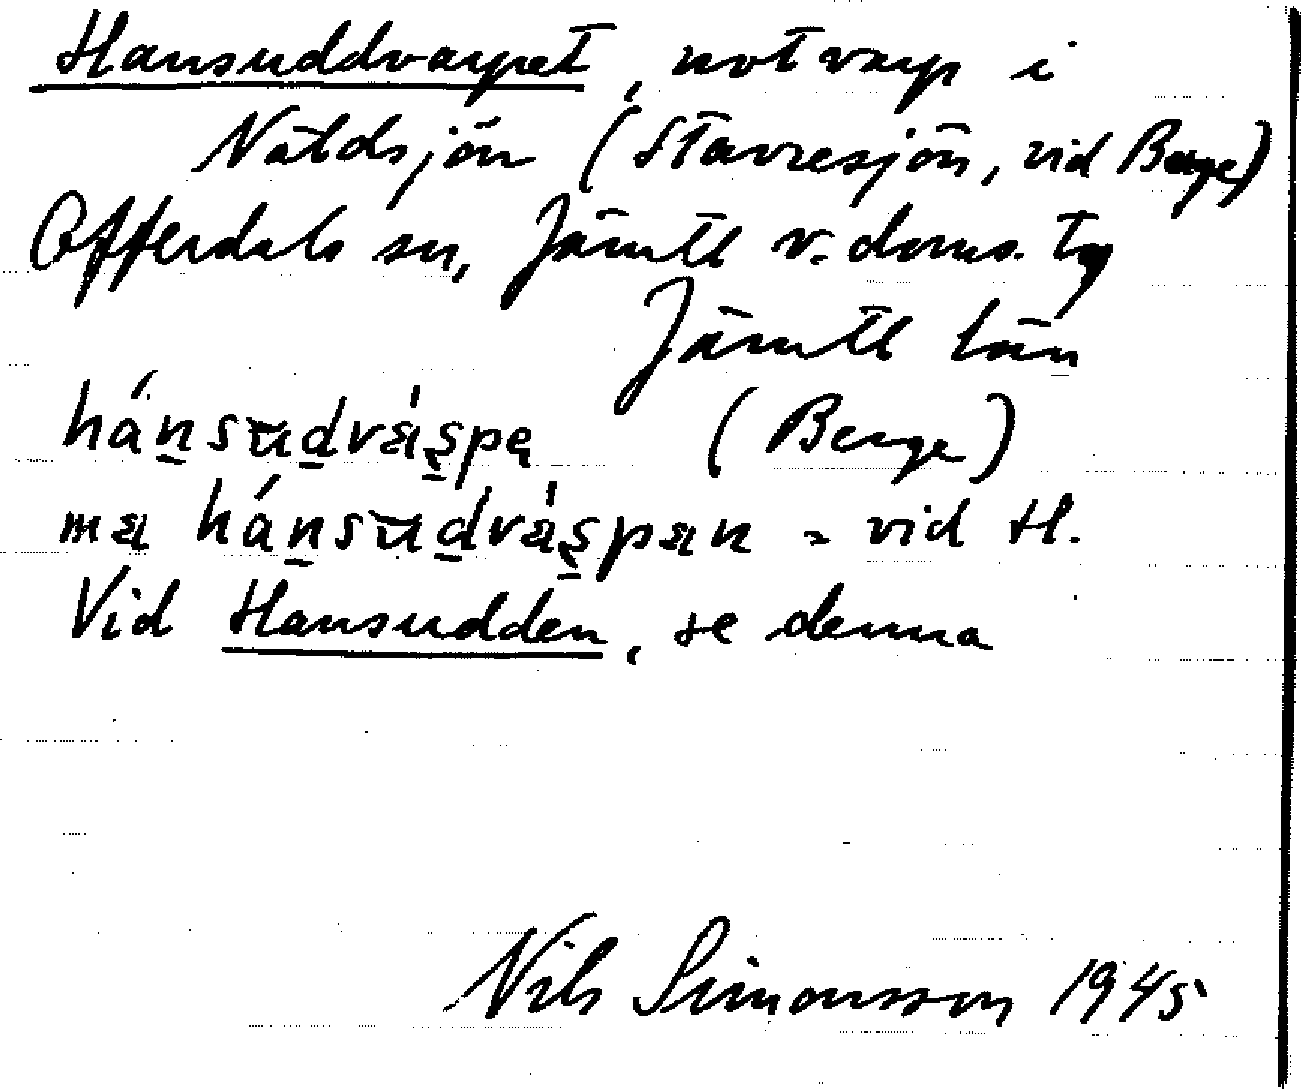 Hansuddvarpet, notvarp i
Näldsjön (Stavresjön, vid Berge)
Offerdals sn, Jämtl v. doms. tg
Jämtl län
hánsudvàrpe (Berge)
ma hánsudvàrpan = vid H.
Vid Hansudden, se denna
Nils Simonsson 1945